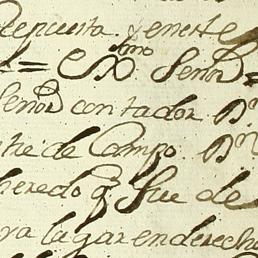 Repuesta. y eneste
= Exmo Señor =
Señor contador Dn
tre de Campo. Dn
heredo q fue de
ra lagar en derecho